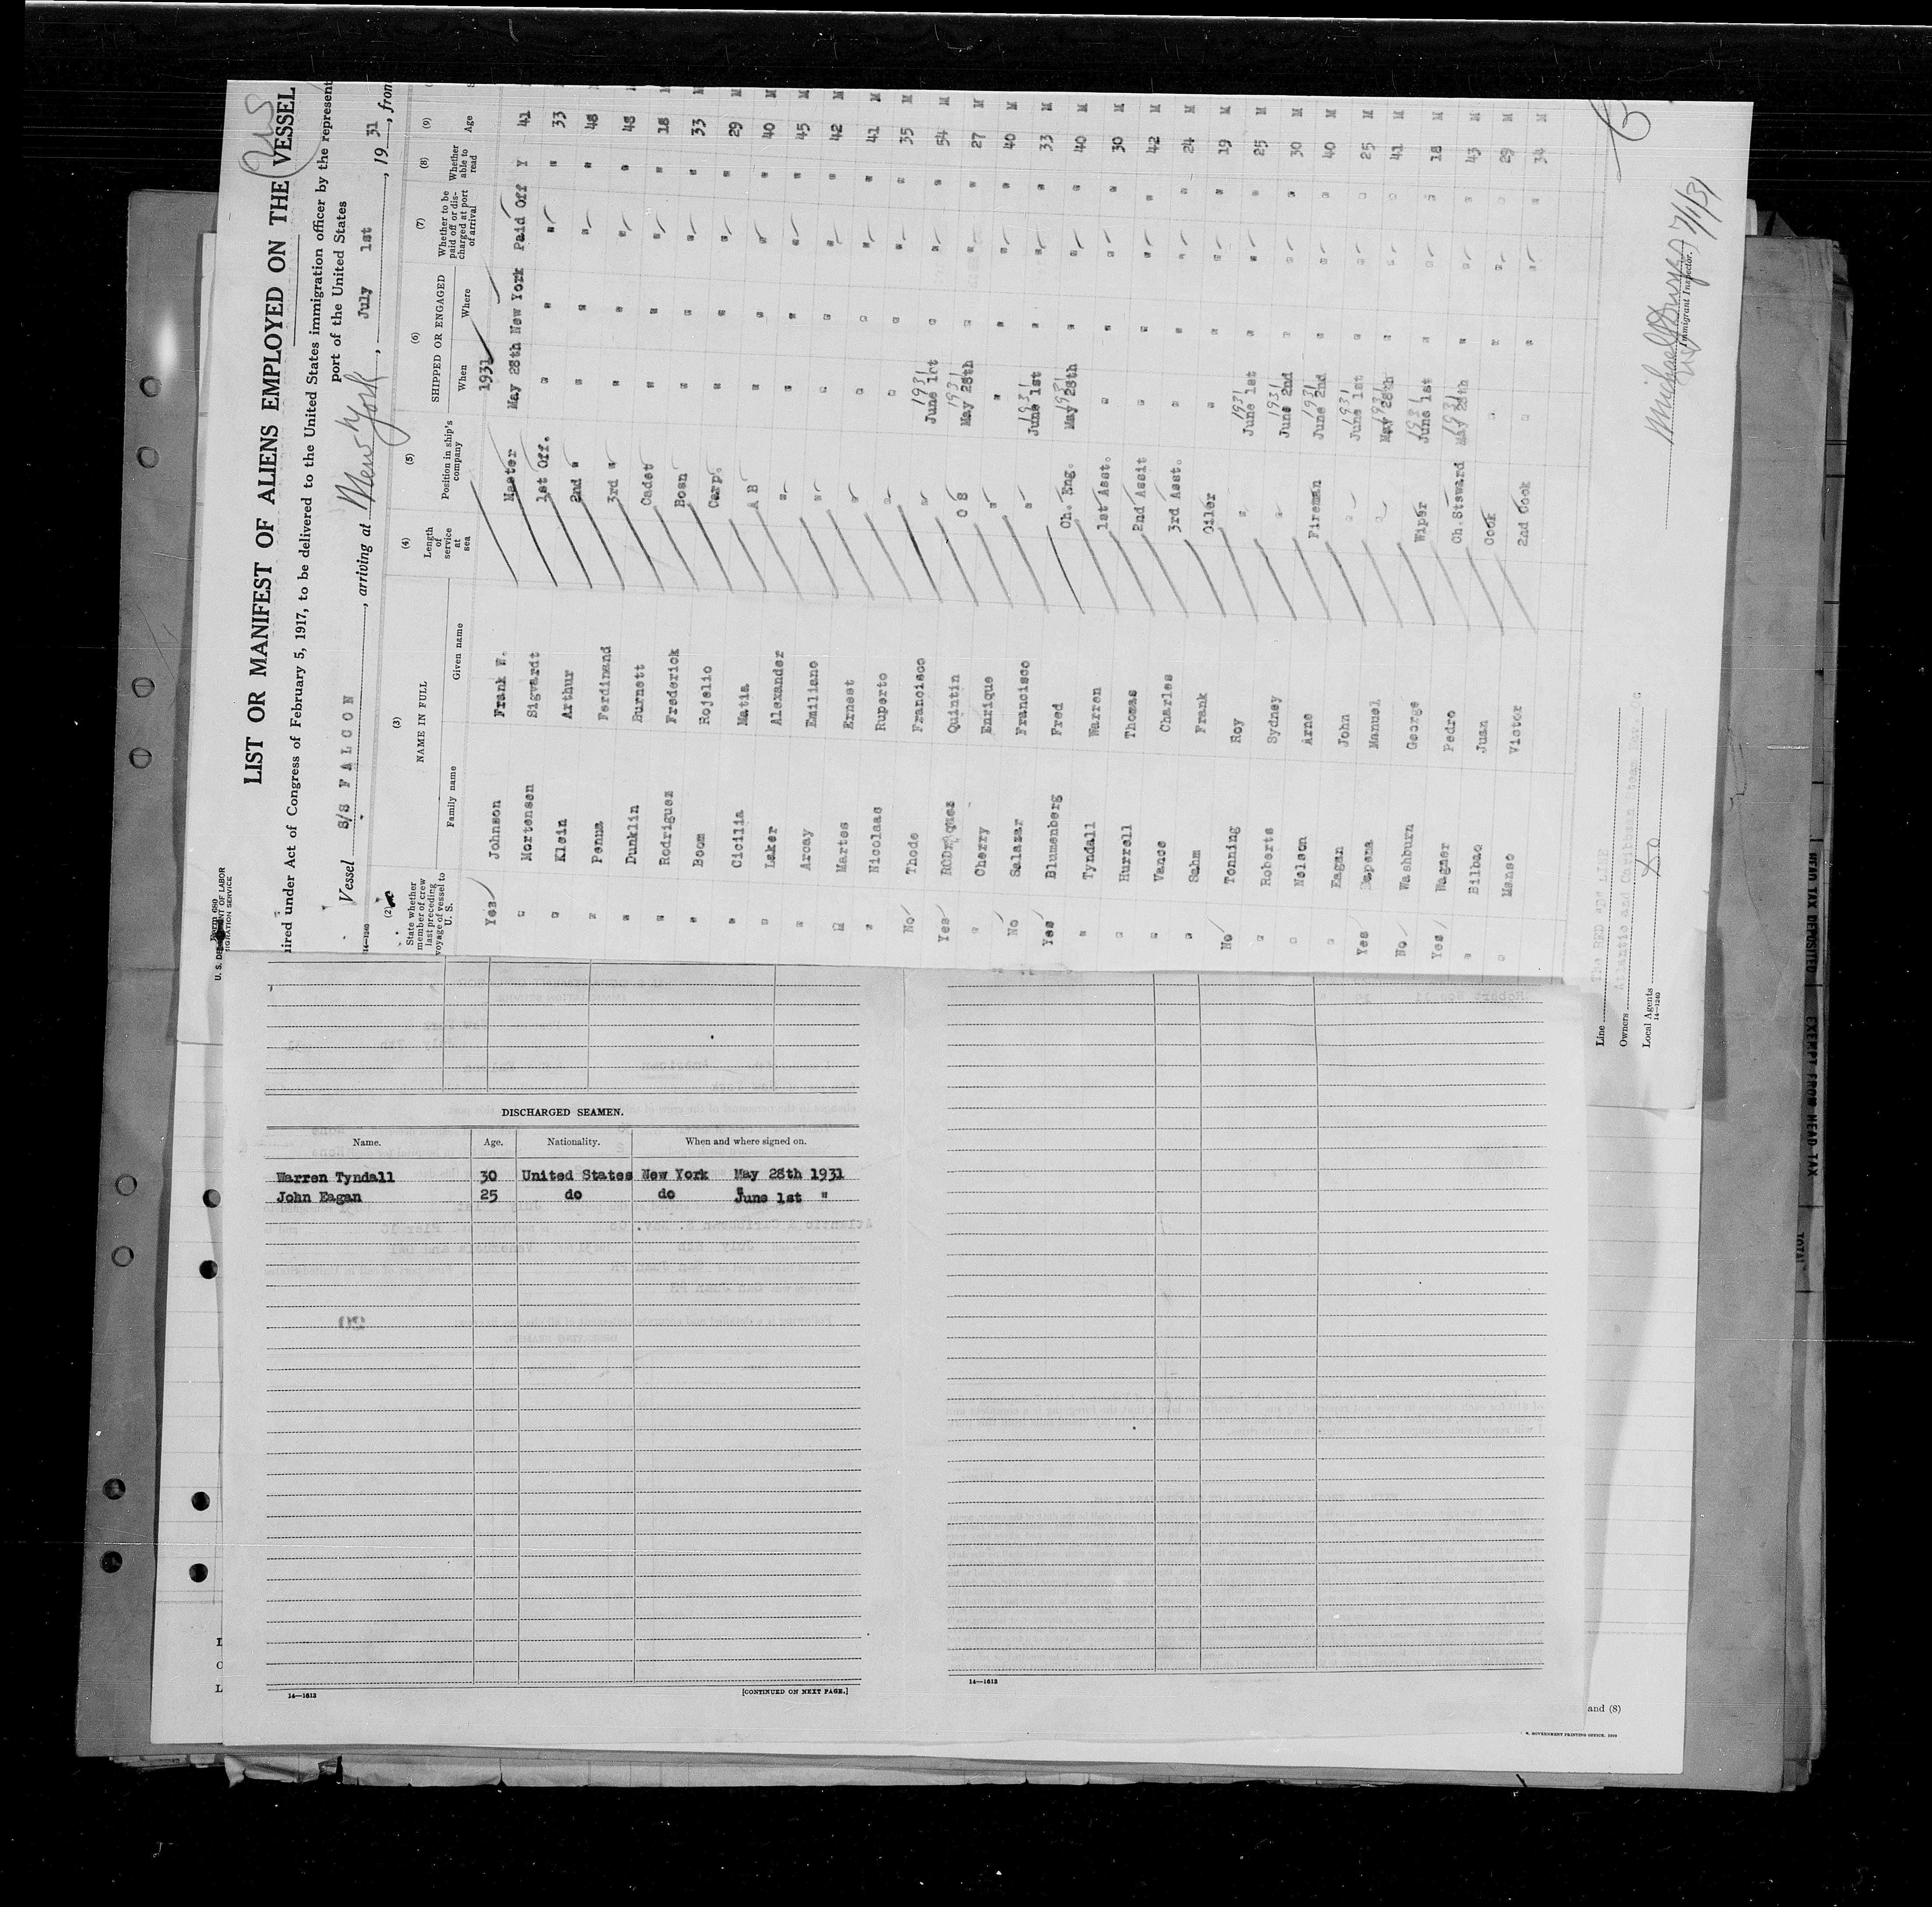 Form 689
U. S. DEPARTMENT OF LABOR
IMMIGRATION SERVICE
LIST OR MANIFEST OF ALIENS EMPLOYED ON THE VESSEL
ired under Act of Congress of February 5, 1917, to be delivered to the United States immigration officer by the represent
port of the United States
Vessel S/S FALCON, arriving at New York, July 1st, 19 31, from
14—1240
(2) (3) (4) (5) (6) (7) (8) (9)
State whether member of crew last preceding voyage of vessel to U. S.
NAME IN FULL
Family name Given name
Length of service at sea
Position in ship's company
SHIPPED OR ENGAGED
When Where
Whether to be paid off or discharged at port of arrival
Whether able to read
Age
1931
Yes Johnson Frank W. Master May 28th New York Paid Off Y 41
" Mortensen Sigvardt 1st Off. " " " " 33
" Klein Arthur 2nd " " " " " 48
" Penna Ferdinand 3rd " " " " " 48
" Dunklin Burnett Cadet " " " " 18
" Rodriguez Frederick Bosn " " " " 33
" Boom Rojelio Carp. " " " " 29 M
" Cicilia Matia A B " " " " 40 M
" Laker Alexander " " " " " 45 M
" Arcay Emiliano " " " " " 42 M
" Martes Ernest " " " " " 41 M
" Nicolaas Ruperto " " " " " 35 M
No Thode Francisco " 1931 June 1st " " " 54 M
Yes RODriquez Quintin O S 1931 May 28th " " " 27 M
" Cherry Enrique " " " " " 40 M
No Salazar Francisco " 1931 June 1st " " " 33 M
Yes Blumenberg Fred Ch. Eng. 1931 May 28th " " " 40 M
" Tyndall Warren 1st Asst. " " " " 30 M
" Hurrell Thomas 2nd Assit " " " " 42 M
" Vance Charles 3rd Asst. " " " " 24 M
" Sahm Frank Oiler " " " " 19 M
No Tonning Roy " 1931 June 1st " " " 25 M
" Roberts Sydney " 1931 June 2nd " " " 30 M
" Nelson Arne Fireman 1931 June 2nd " " " 40 M
" Eagan John " 1931 June 1st " " " 25 M
Yes Manuel " 1931 May 28th " " " 41 M
No Washburn George Wiper 1931 June 1st " " " 18 M
Yes Wagner Pedro Ch.Steward 1931 May 28th " " " 43 M
" Bilbao Juan Cook " " " " 29 M
" Manso Victor 2nd Cook " " " " 34 M
Line THE RED "D" LINE
Owners Atlantic and Caribbean
Local Agents Do
14—1240
7/1/31
Immigrant Inspector.
DISCHARGED SEAMEN.
Name. Age. Nationality. When and where signed on.
Warren Tyndall 30 United States New York May 28th 1931
John Eagan 25 do do June 1st "
14—1613
[CONTINUED ON NEXT PAGE.]
14—1613
and (8)
GOVERNMENT PRINTING OFFICE
HEAD TAX DEPOSITED
EXEMPT FROM HEAD TAX
TOTAL